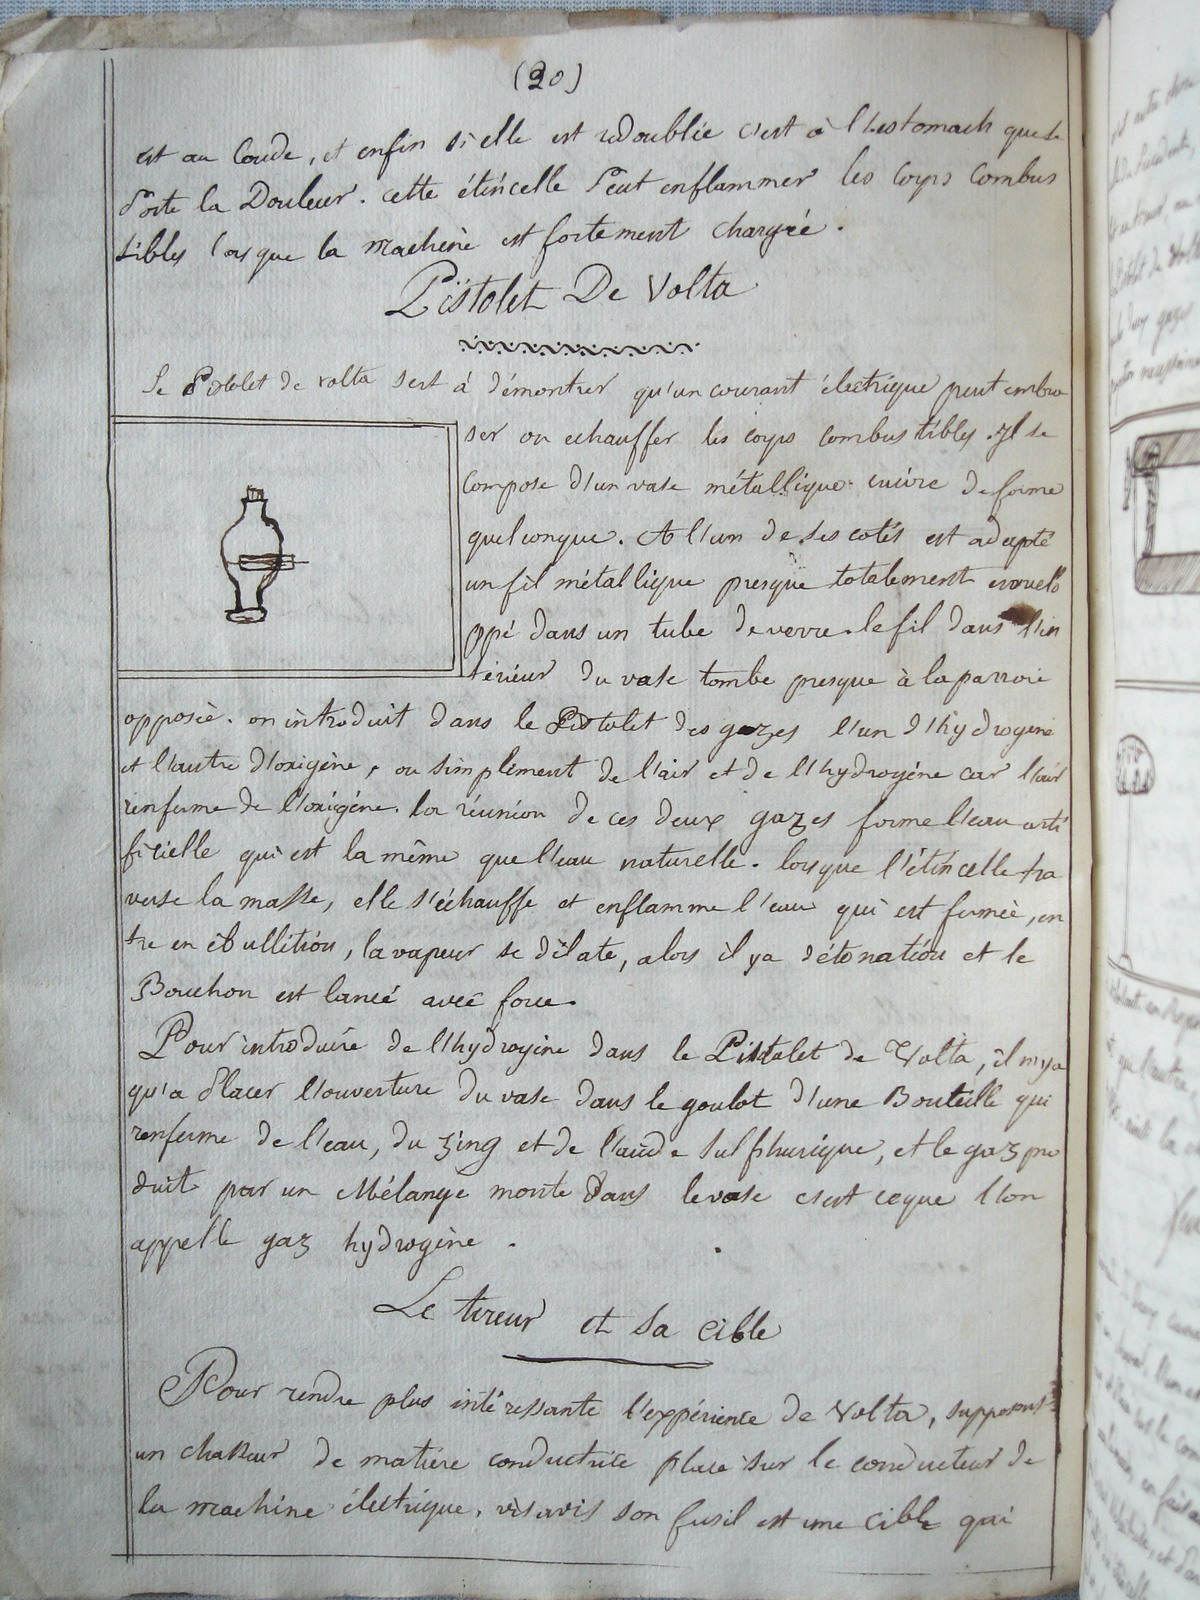 (20)
est au Coude, et enfin si elle est redoublée c'est à l'Estomach que se
Porte la Douleur. Cette étincelle Peut enflammer les Corps Combus
tibles lorsque la machine est fortement chargée.
Pistolet De Volta
Le Pistolet de volta sert à démontrer qu'un courant électrique peut embra
ser ou echauffer les corps combustibles. Il se
compose d'un vase métallique cuivre de forme
quelconque. A l'un de ses cotés est adapté
un fil métallique presque totalement envelo
ppé dans un tube de verre. le fil dans l'in
térieur du vase tombe presque à la parroie
opposée. on introduit dans le Pistolet des gazes l'un d'hydrogene
et l'autre d'oxigène, ou simplement de l'air et de l'hydrogène car l'air
renferme de l'oxigène. la réunion de ces deux gazes forme l'eau arti
ficielle qui est la même que l'eau naturelle. lorsque l'étincelle tra
verse la masse, elle s'échauffe et enflamme l'eau qui est formée, en
tre en ébullition, la vapeur se dilate, alors il y a détonation et le
Bouchon est lancé avec force.
Pour introduire de l'hydrogène dans le Pistolet de Volta, il n'y a
qu'a Placer l'ouverture du vase dans le goulot d'une Bouteille qui
renferme de l'eau, du zing et de l'acide sulphurique, et le gaz pro
duit par un Mélange monte Dans le vase c'est ce que l'on
appelle gaz hydrogène.
Le tireur et sa cible
Pour rendre plus intéressante l'expérience de Volta, supposons
un chasseur de matiere conductrice place sur le conducteur de
la machine électrique. vis avis son fusil est une cible qui